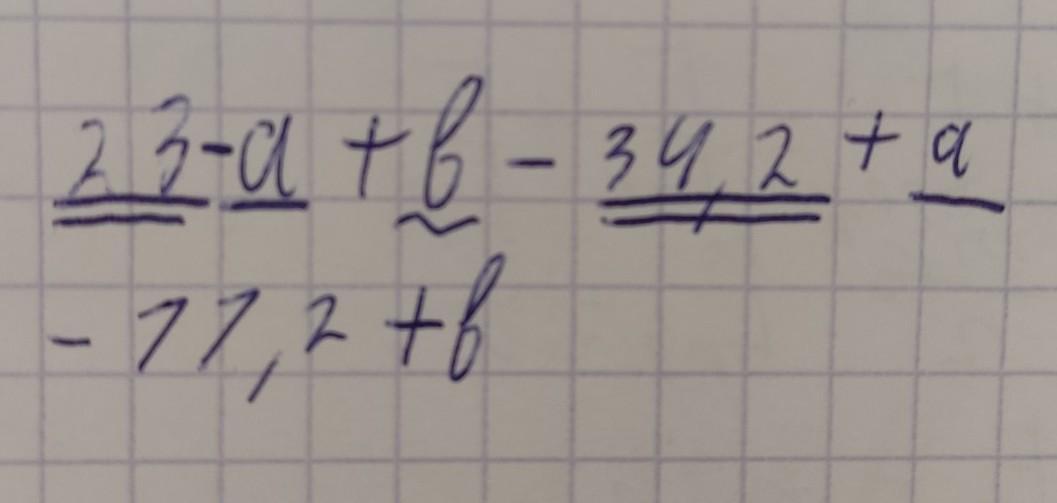 23-a+b-34,2+a
-11,2+b